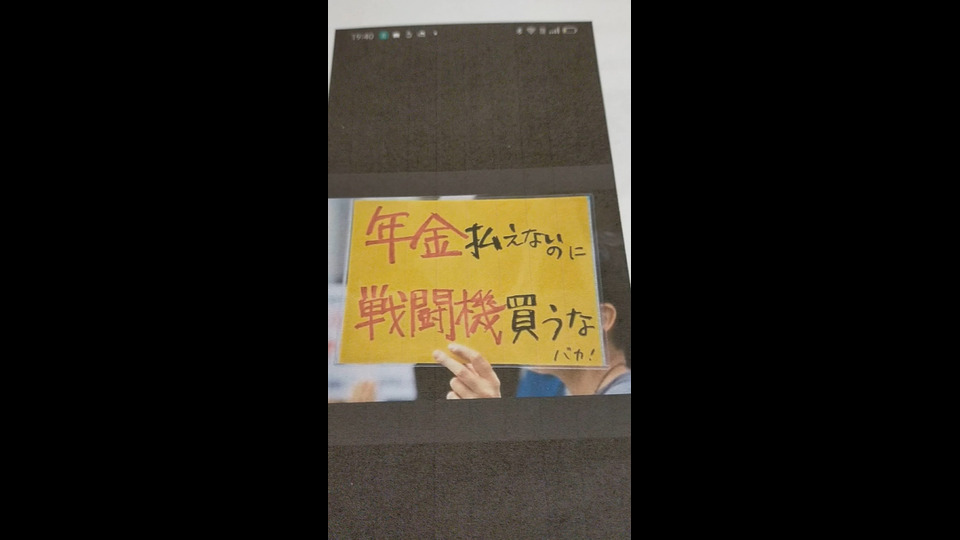 19:40
年金払えないのに
戦闘機買うな
バカ!